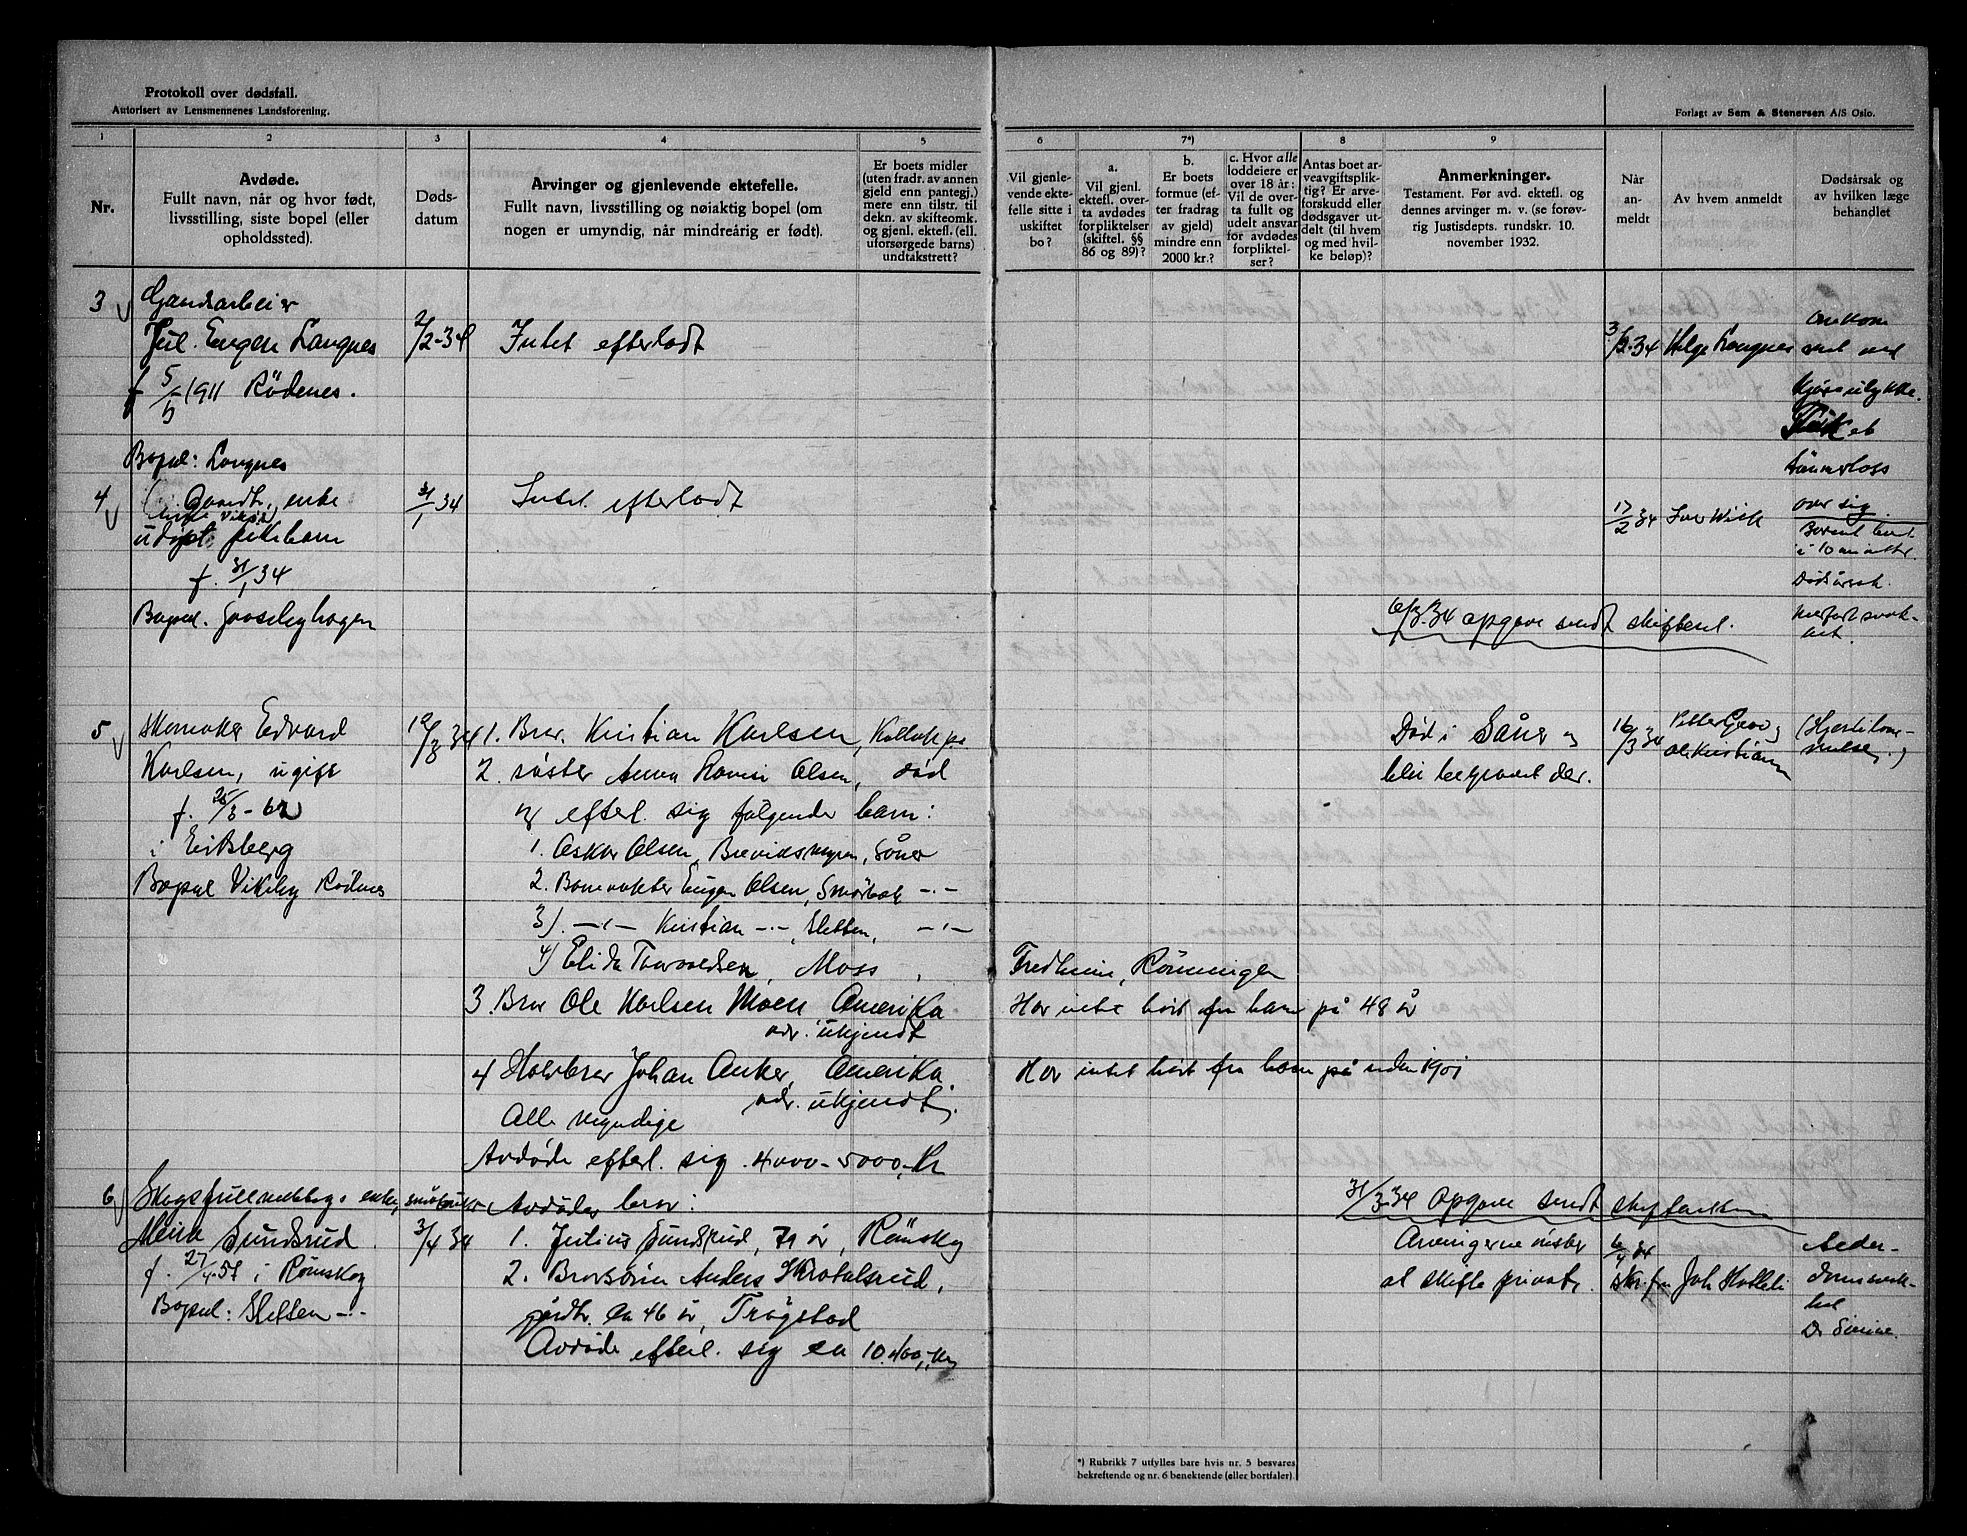 Protokoll over dødsfall.
Autorisert av Lensmennenes Landsforening.
Forlagt av Sem & Stenersen A/S Oslo.
1
2
3
4
5
6
7*)
8
9
Nr.
Avdøde.
Fullt navn, når og hvor født,
livsstilling, siste bopel (eller
opholdssted).
Døds-
datum
Arvinger og gjenlevende ektefelle.
Fullt navn, livsstilling og nøiaktig bopel (om
nogen er umyndig, når mindreårig er født).
Er boets midler
(uten fradr. av annen
gjeld enn pantegj.)
mere enn tilstr. til
dekn. av skifteomk.
og gjenl. ektef. (ell.
uforsørgede barns)
undtakstrett?
Vil gjenle-
vende ekte-
felle sitte i
uskiftet
bo?
a.
Vil gjenl.
ektef. over-
ta avdødes
forpliktelser
(skiftel. §§
86 og 89)?
b.
Er boets
formue (ef-
ter fradrag
av gjeld)
mindre enn
2000 kr.?
c. Hvor alle
loddeiere er
over 18 år:
Vil de over-
ta fullt og
udelt ansvar
for avdødes
forpliktel-
ser?
Antas boet ar-
veavgiftsplik-
tig? Er arve-
forskudd eller
dødsgaver ut-
delt (til hvem
og med hvil-
ke beløp)?
Anmerkninger.
Testament. Før avd. ektef. og
dennes arvinger m. v. (se forøv-
rig Justisdepts. rundskr. 10.
november 1932.
Når
an-
meldt
Av hvem anmeldt
Dødsårsak og
av hvilken læge
behandlet
3
Jul. Eugen Langnes
f 5/5 1911 Rødenes.
Bopel: Langnes
2/2-34
Intet efterladt
3/2-34 Helge Langnes
Kjøreulykke.
over sig.
4
enke
udøpt pikebarn
f. 31/1 34
Bopel.
31/1 34
Intet efterladt
17/2 34
i 10 minutter.
Dødsårsak.
6/3.34 opgave sendt skifteret.
5
Skomaker Edvard
Karlsen, ugift
f. 25/3-62
i Eidsberg
Bopel Vikeby Rødenes
10/3 34
1. Bror. Kristian Karlsen,
2. søster Anna Lovise Olsen, død
og efterl. sig følgende barn:
1. Oskar Olsen, Brevidsmyren, Såner
2. Banevokter Eugen Olsen, Smørbek -"-
3). -"- Kristian -"-, Sletten, -"-
4) Elida Torvaldsen, Moss,
Fredheim, Rønningen
3. Bror Ole Karlsen Moen Amerika
adr. ukjendt
Har intet hørt fra ham på 48 år
4 Halvbror Johan Anker, Amerika.
adr. ukjendt.
Har intet hørt fra ham på siden 1901
Alle myndige
Avdøde efterl. sig 4000-5000,- Kr
Død i Såner og
blir begravet der.
16/3 34
Ole Kristiansen
31/3-34 opgave sendt
6
enke, småbruker
Sundsrud
f. 27/4-57 i Rømskog
Bopel: Sletten -"-
3/4 34
Avdødes bror:
1. Julius Sundsrud, 79 år, Rømskog
2. Brorsønn Anders Krotalsrud,
gårdbr. ca 46 år, Trøgstad
Avdøde efterl. sig ca 10.400,- Kr
Arvingerne ønsker
at skifte privat.
6/4 34
Joh
Alder-
doms
Dr
*) Rubrikk 7 utfylles bare hvis nr. 5 besvares
bekreftende og nr. 6 benektende (eller bortfaler).